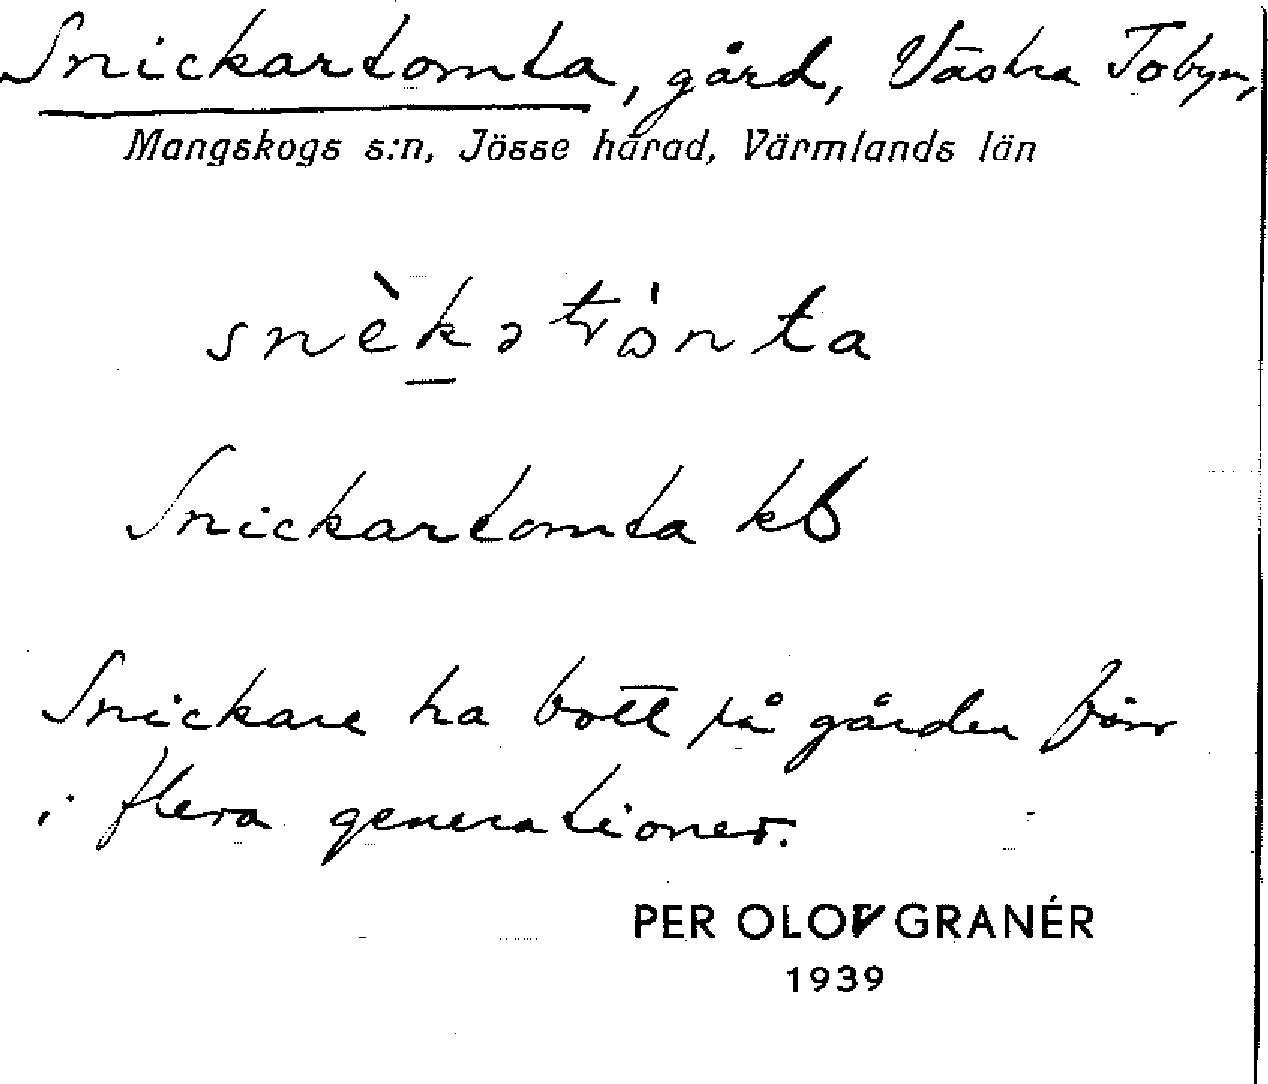 Snickartomta, gård, Västra Tobyn,
Mangskogs s:n, Jösse härad, Värmlands län
Snickartomta kb
Snickare ha bott på gården förr
i flera generationer.
PER OLOV GRANÉR
1939